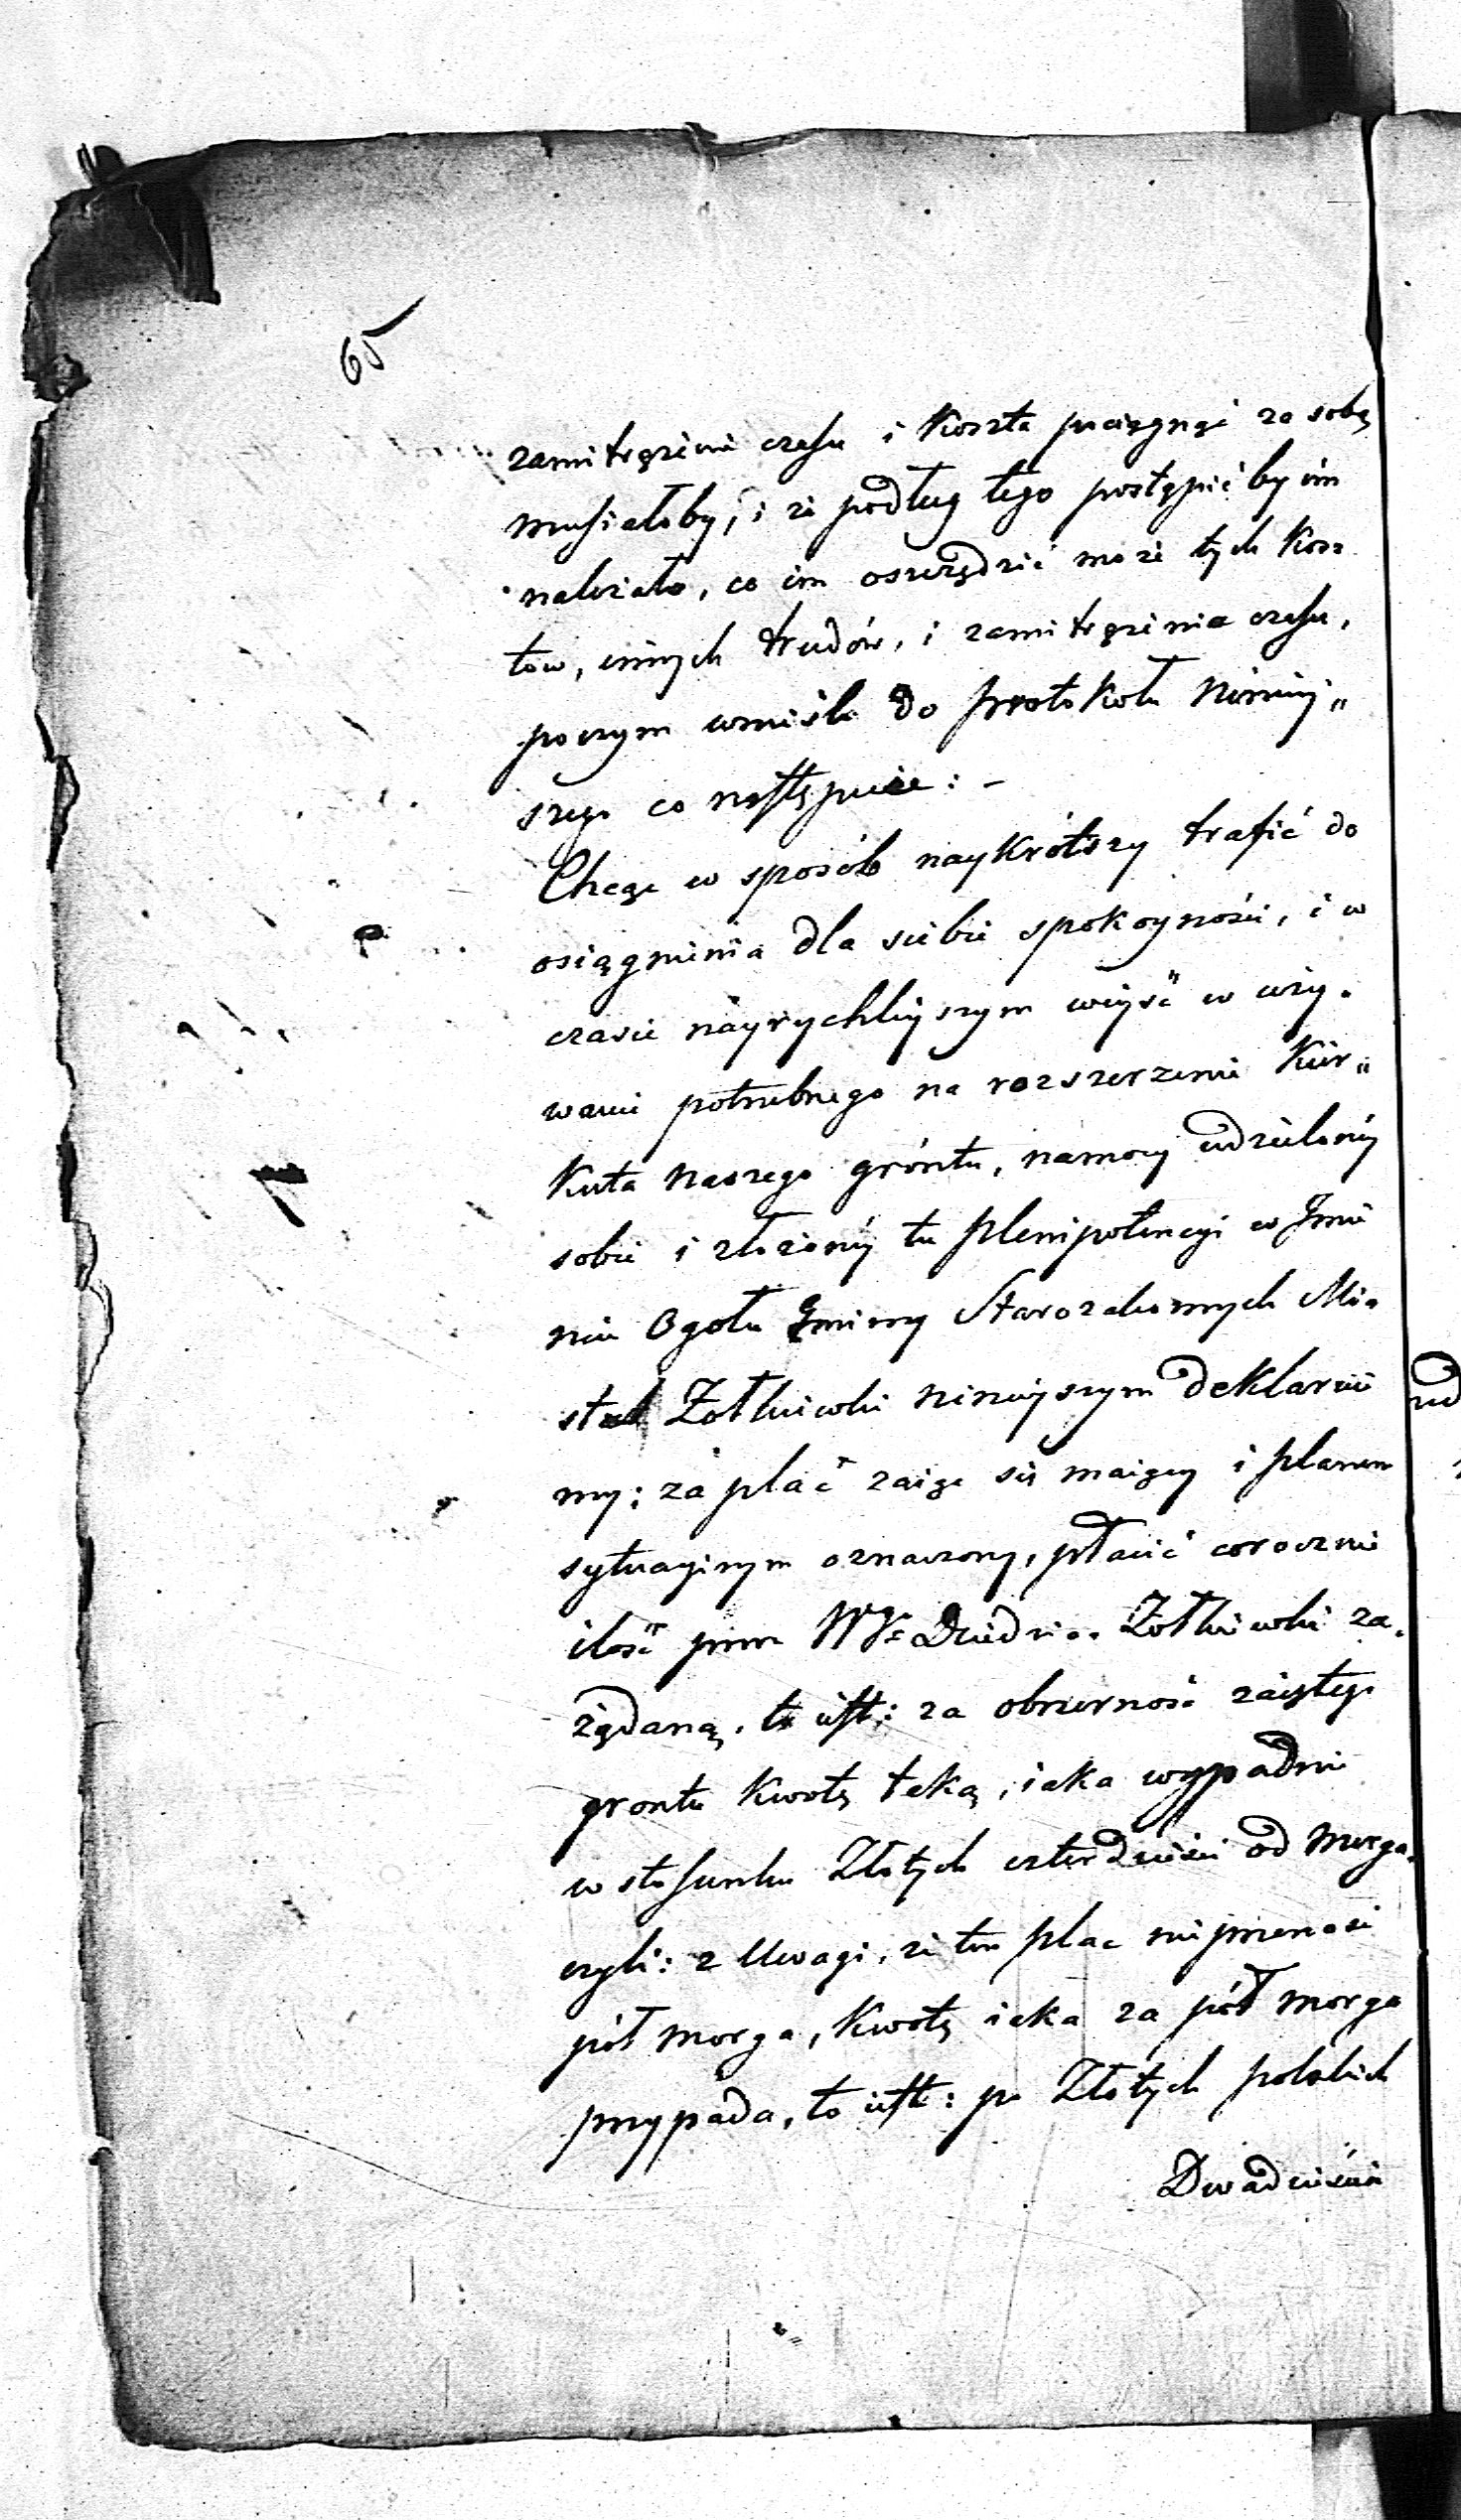 65
zamitrężenie czasu i Koszta pociągnąć za sobą
musiałoby, i że podług tego postąpić by im
należało, co im oszczędzić może tych Kosz
tow, innych trudów, i zamitrężenia czasu,
poczym wnieśli do protokołu Niniey„
szego co następuie: –
Chcąc w sposób naykrótszy trafić do
osiągnienia dla siebie spokoyności, i w
czasie nayrychleyszym weyść w uży.
wanie potrzebnego na rozszerzenie Kier„
Kuta naszego gróntu, namocy udzieloney
sobie i złożoney tu plenipotencyi w Imie
niu Ogołu Gminy Starozakonnych Mia
sta Zołkiewki ninieyszym deklaruie
my: za plac zaiąć się maiący i planem
sytuacyinym oznaczony, płacić corocznie
ilość przez WJo Dziedzica Zołkiewki za„
żądaną, to iest: za obszerność zaiętego
grontu Kwotę taką, iaka wypadnie
w stosunku Złotych czterdzieści od Morga,
czyli: z Uwagi, że ten plac nieprzenosi
pół morga, Kwotę iaka za pół morga
przypada, to iest: po Złotych polskich
Dwadzieścia